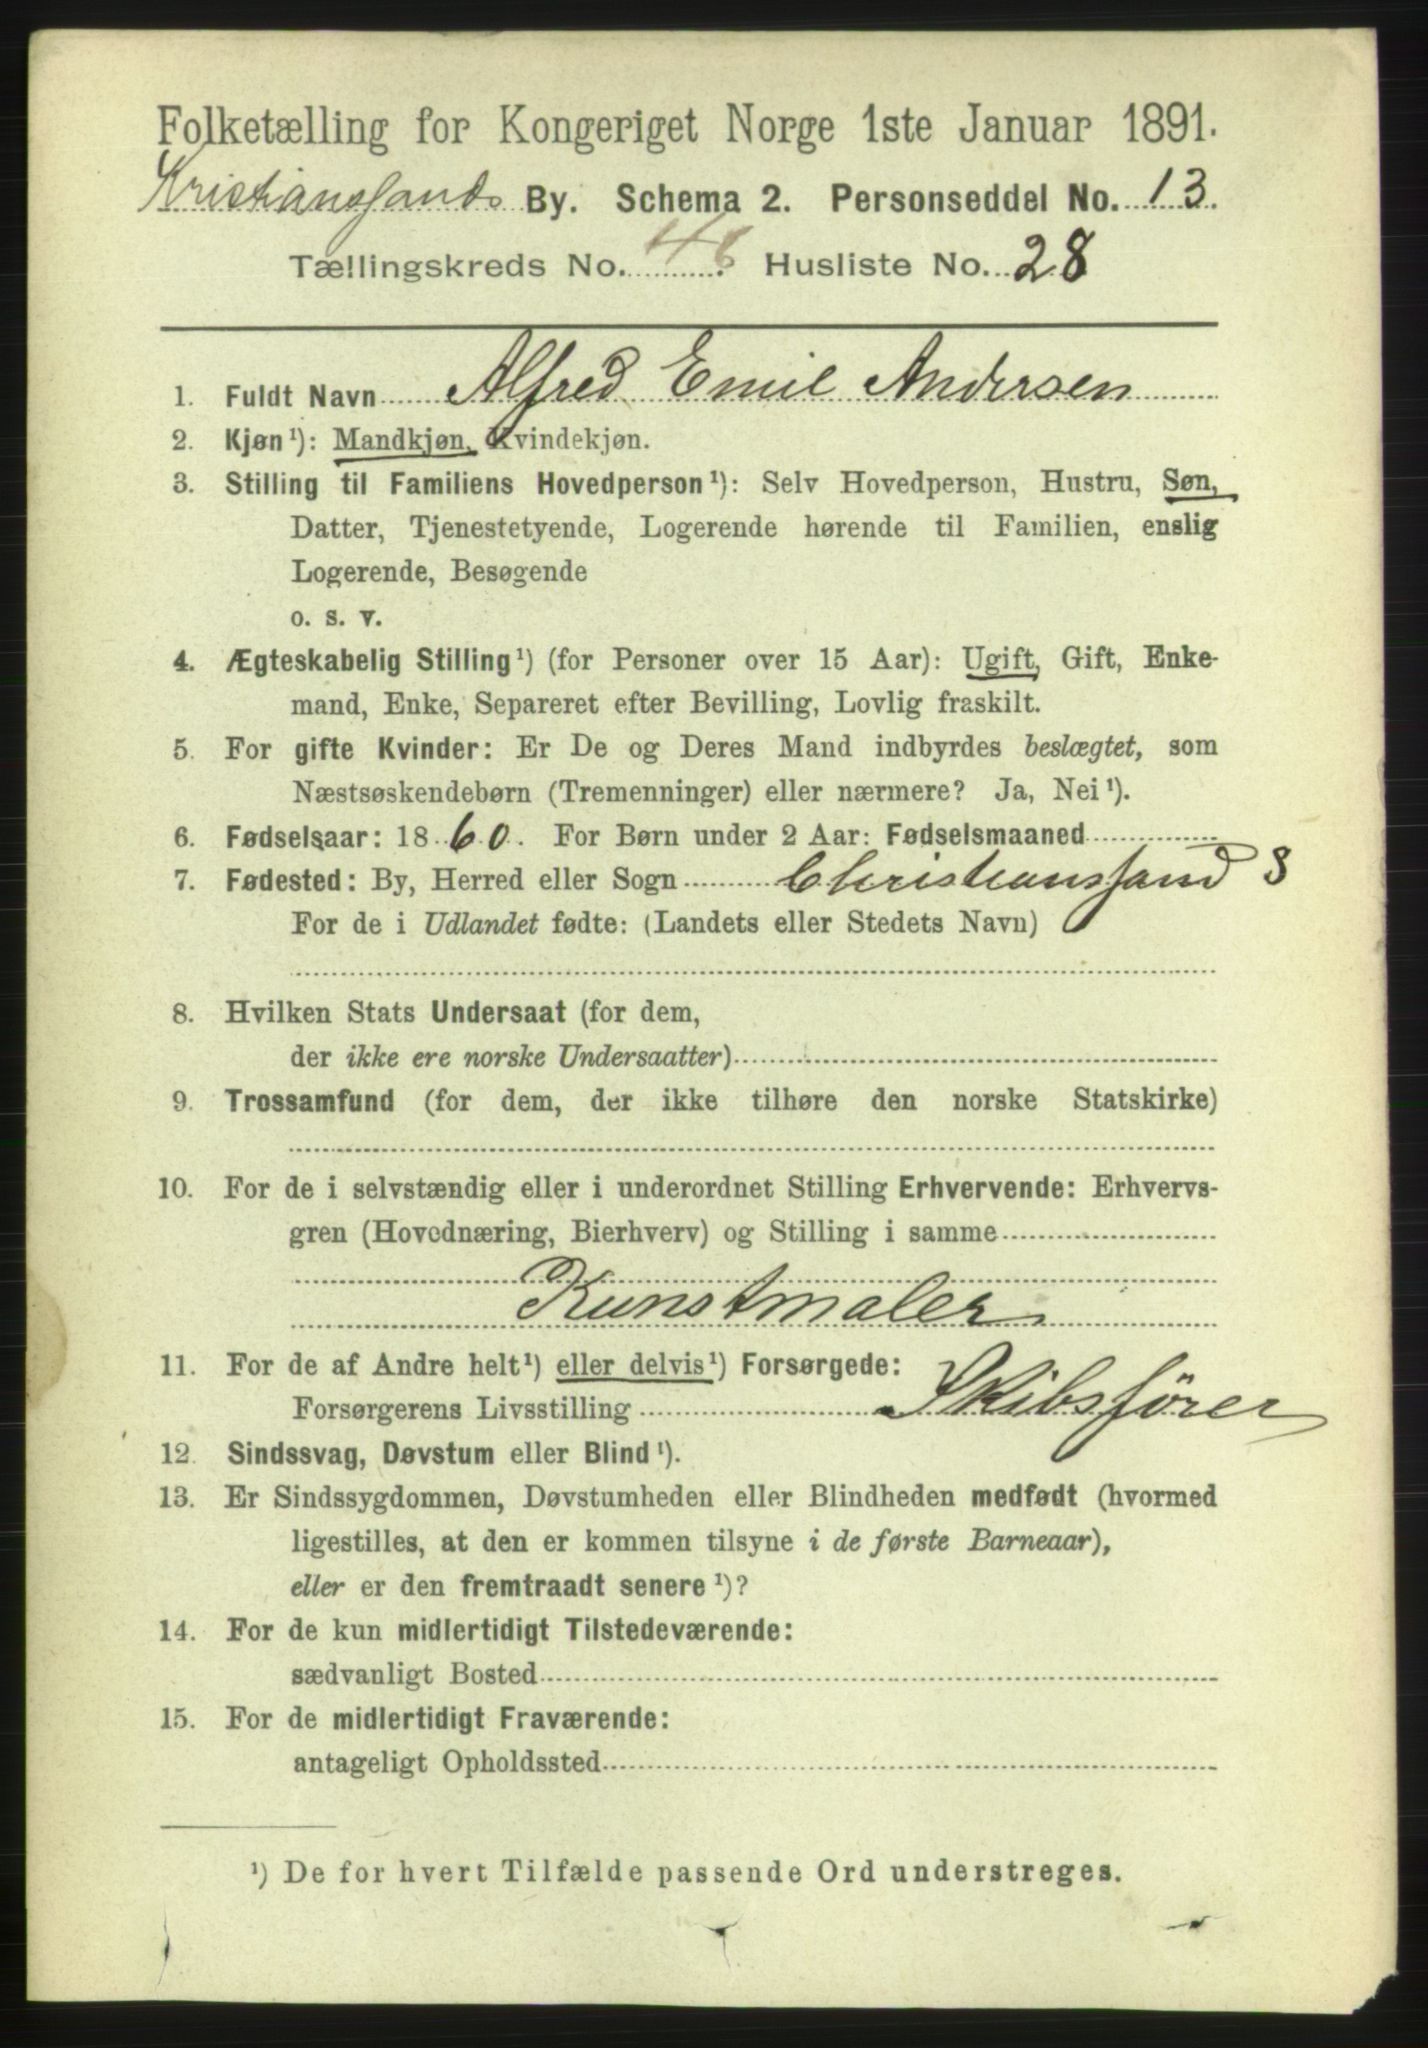 Folketælling for Kongeriget Norge 1ste Januar 1891.
Kristianssands By. Schema 2. Personseddel No. 13.
Tællingskreds No. Husliste No. 28
1. Fuldt Navn Alfred Emil Andersen
2. Kjøn¹): Mandkjøn, Kvindekjøn.
3. Stilling til Familiens Hovedperson¹): Selv Hovedperson, Hustru, Søn,
Datter, Tjenestetyende, Logerende hørende til Familien, enslig
Logerende, Besøgende
o. s. v.
4. Ægteskabelig Stilling¹) (for Personer over 15 Aar): Ugift, Gift, Enke-
mand, Enke, Separeret efter Bevilling, Lovlig fraskilt.
5. For gifte Kvinder: Er De og Deres Mand indbyrdes beslægtet, som
Næstsøskendebørn (Tremenninger) eller nærmere? Ja, Nei¹).
6. Fødselsaar: 1860. For Børn under 2 Aar: Fødselsmaaned
7. Fødested: By, Herred eller Sogn Christianssand S
For de i Udlandet fødte: (Landets eller Stedets Navn)
8. Hvilken Stats Undersaat (for dem,
der ikke ere norske Undersaatter)
9. Trossamfund (for dem, der ikke tilhøre den norske Statskirke)
10. For de i selvstændig eller i underordnet Stilling Erhvervende: Erhvervs-
gren (Hovednæring, Bierhverv) og Stilling i samme
Kunstmaler
11. For de af Andre helt¹) eller delvis¹) Forsørgede:
Forsørgerens Livsstilling Skibsfører
12. Sindssvag, Døvstum eller Blind¹).
13. Er Sindssygdommen, Døvstumheden eller Blindheden medfødt (hvormed
ligestilles, at den er kommen tilsyne i de første Barneaar),
eller er den fremtraadt senere¹)?
14. For de kun midlertidigt Tilstedeværende:
sædvanligt Bosted
15. For de midlertidigt Fraværende:
antageligt Opholdssted
¹) De for hvert Tilfælde passende Ord understreges.